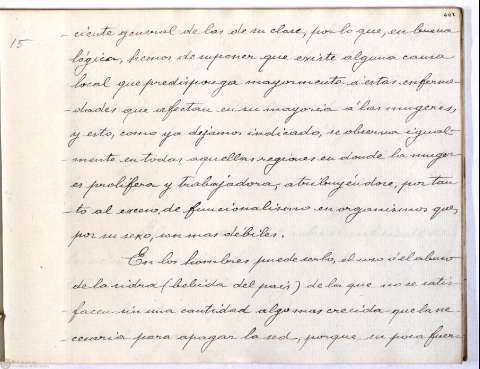 15
-ciente general de las de su clase, por lo que, en buena
lógica, hemos de suponer que existe alguna causa
local que predisponga mayormente á estas enferme-
-dades que afectan en su mayoria á las mugeres,
y esto, como ya dejamos indicado, se observa igual-
-mente en todas aquellas regiones en donde la muger
es prolifera y trabajadora, atribuyéndose, por tan-
-to al exceso, de funcionalismo en organismos que,
por su sexo, son mas débiles.
En los hombres puede serlo, el uso ó el abuso
de la sidra (bebida del pais) de la que no se satis-
-facen sin una cantidad algo mas crecida que la ne-
-cesaria para apagar la sed, porque su poca fuer-